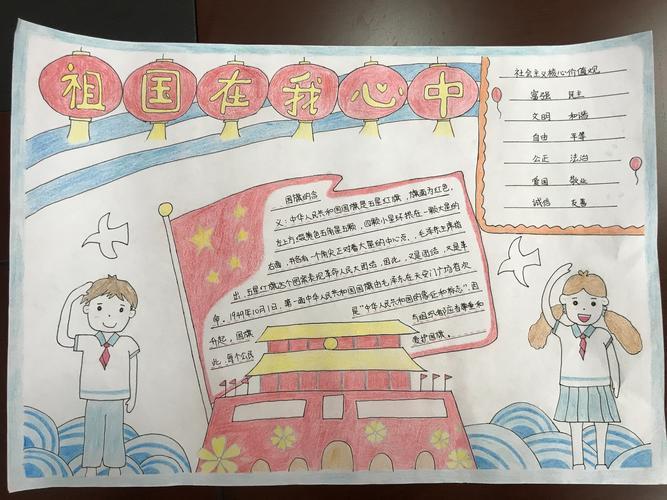 祖国在我心中
社会主义核心价值观
富强 民主
文明 和谐
自由 平等
公正 法治
爱国 敬业
诚信 友善
国旗的含
义:中华人民共和国国旗是五星红旗,旗面为红色,
左上方缀黄色五角星五颗,四颗小星环拱在一颗大星的
右面,并各有一个角尖正对着大星的中心点,毛泽东主席指
出,五星红旗这个图案表现革命人民大团结,因此,又是团结,又是革
命,1949年10月1日,第一面中华人民共和国国旗由毛泽东在天安门广场首次
升起,国旗 是"中华人民共和国的象征和标志",因
此,每个公民 与组织都应当尊重和
爱护国旗。